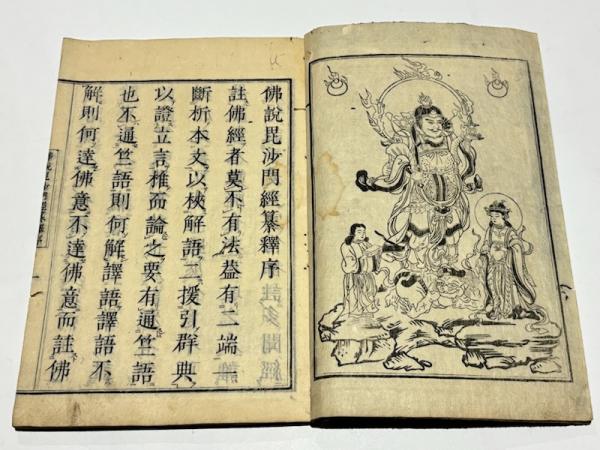 佛說毘沙門經纂釋序
註佛經者莫不有法葢有二端一
斷析本文以挍解語二援引群典
以證立言推而論之要有通竺語
也不通竺語則何解譯語譯語不
解則何達佛意不達佛意而註佛